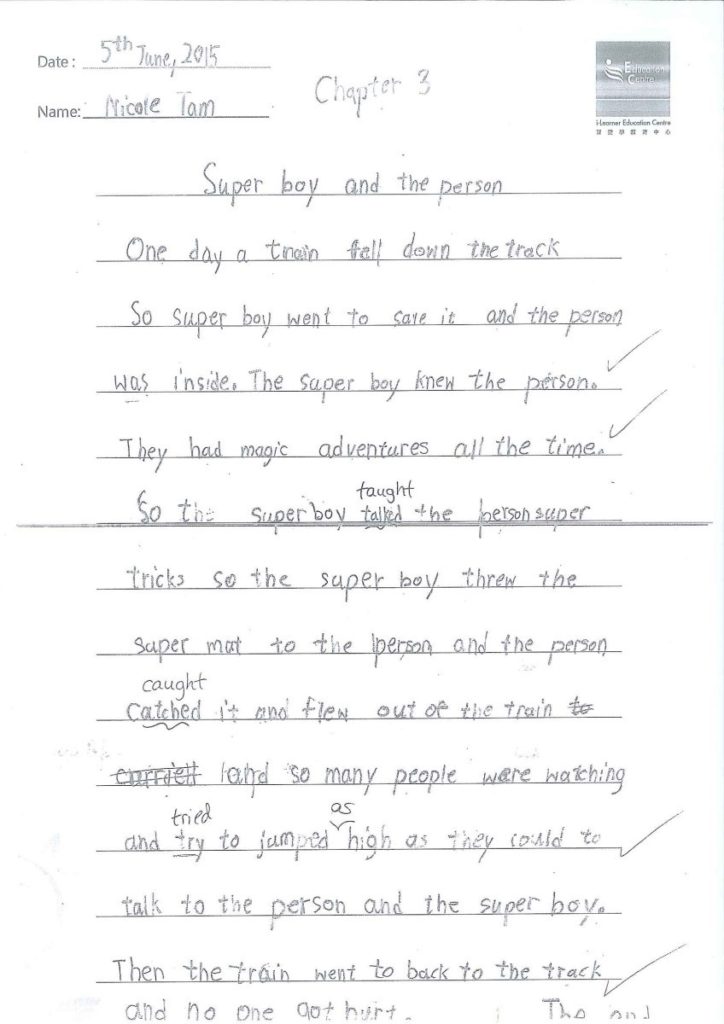 Date: 5th June, 2015
Chapter 3
Education
Centre
i-Learner Education Centre
Name: Nicole Tam
Super boy and the person
One day a train fell down the track
So super boy went to save it and the person
was inside. The super boy knew the person.
They had magic adventures all the time.
taught
So the super boy talked the person super
tricks so the super boy threw the
super mat to the person and the person
caught
Catched it and flew out of the train to
land so many people were watching
tried as
and try to jumped high as they could to
talk to the person and the super boy.
Then the train went to back to the track
and no one got hurt. The end